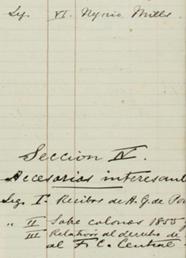 Leg. VI. Nyria Mills
Seccion IV.
Accesorios interesant
Leg. Iº Recibos de A. G. de Po
" II Sobre colonos 1855 y
III Relativo al derecho de
al F. C. Central